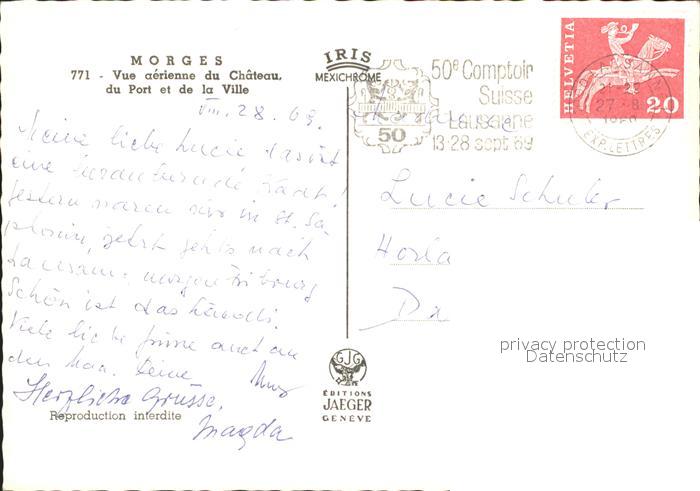 MORGES
771 - Vue aérienne du Château,
du Port et de la Ville
IRIS
MEXICHROME
50e Comptoir
Suisse
Lausanne
13-28 sept 69
50
HELVETIA
20
LAUSANNE
27.-8.
EXP. LETTRES
VIII. 28. 69.
Meine liebe Lucie das ist
eine
Stadt!
Gestern waren wir in St. Sa-
phorin, jetzt geht's nach
Lausanne, morgen Fribourg
Schön ist das Ländli.
Viele liebe Grüsse auch an
den
Deine
Herzliche Grüsse,
Magda
Lucie Schuler
GJG
ÉDITIONS
JAEGER
GENÈVE
Reproduction interdite
privacy protection
Datenschutz